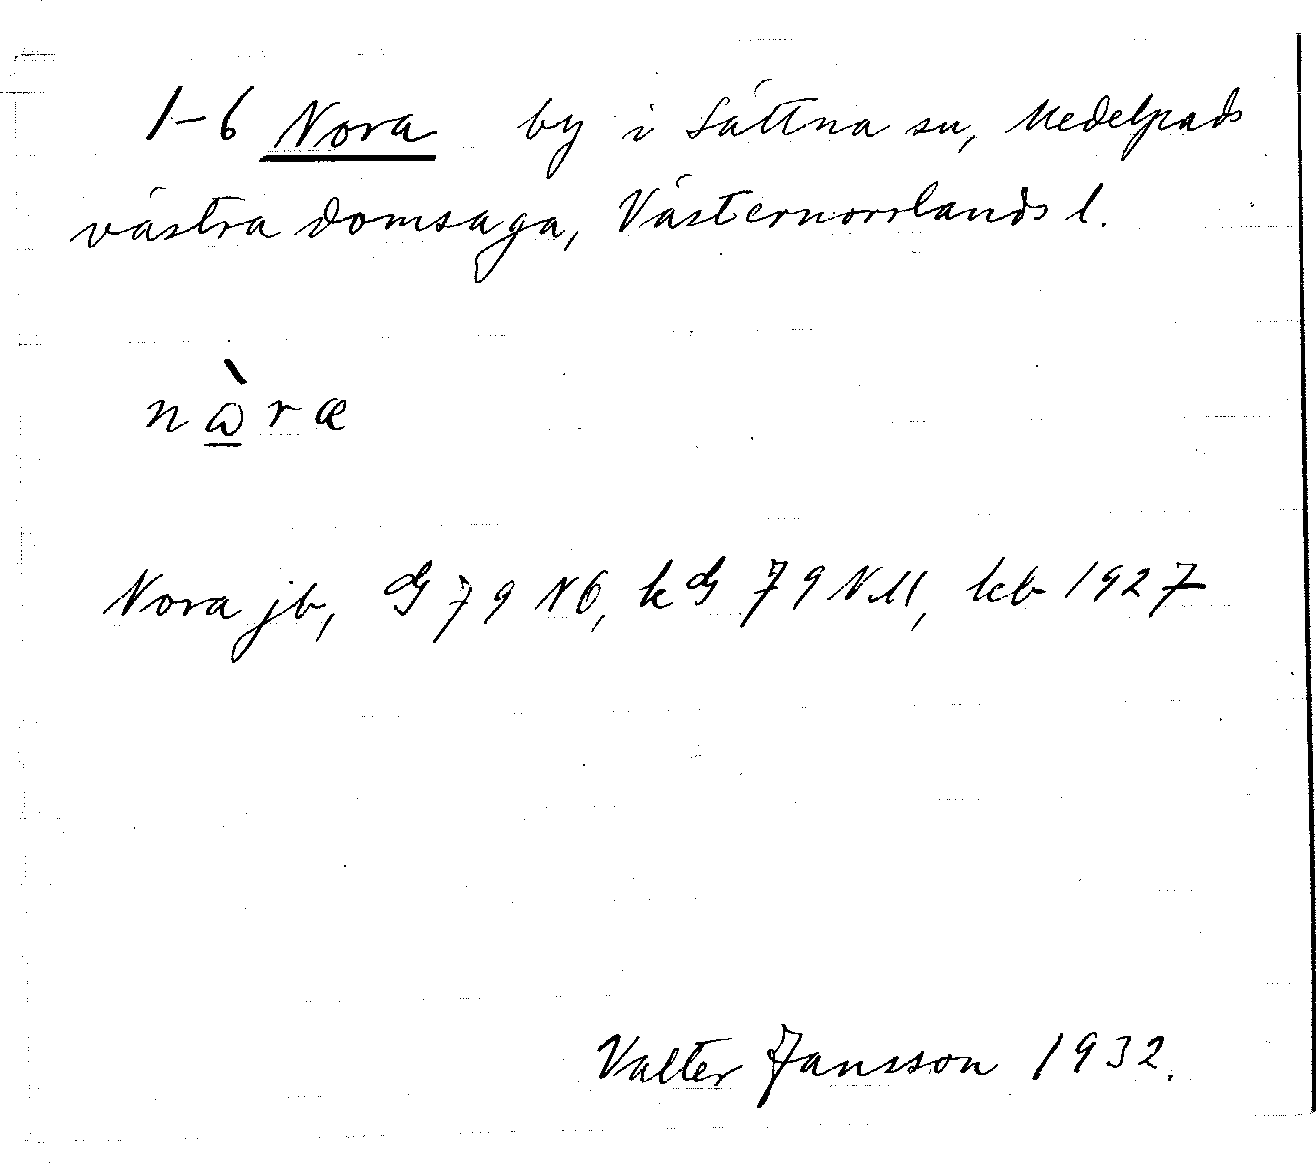 1–6 Nora by i Sättna sn, Medelpads
västra domsaga, Västernorrlands l.
nὼ̲ræ
Nora jb, G 79 NO, kG 79 NM, kb 1927
Valter Jansson 1932.